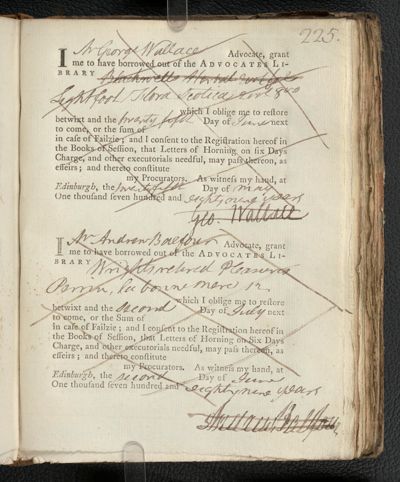 225.
I Mr George Wallace Advocate, grant
me to have borrowed out of the ADVOCATES LI-
BRARY Blackwells Herbal
Lightfoot Flora Scotica 2 vol 8vo
which I oblige me to restore
betwixt and the twenty fifth Day of June next
to come, or the sum of
in case of Failzie; and I consent to the Registration hereof in
the Books of Session, that Letters of Horning on six Days
Charge, and other executorials needful, may pass thereon, as
effeirs; and thereto constitute
my Procurators. As witness my hand, at
Edinburgh, the twenty fifth Day of May
One thousand seven hundred and eighty nine years
Geo. Wallace
I Mr Andrew Balfour Advocate, grant
me to have borrowed out of the ADVOCATES LI-
BRARY Wrights
which I oblige me to restore
betwixt and the second Day of July next
to come, or the Sum of
in case of Failzie; and I consent to the Registration hereof in
the Books of Session, that Letters of Horning on Six Days
Charge, and other executorials needful, may pass thereon, as
effeirs; and thereto constitute
my Procurators. As witness my hand, at
Edinburgh, the second Day of June
One thousand seven hundred and eighty nine years
Andrew Balfour